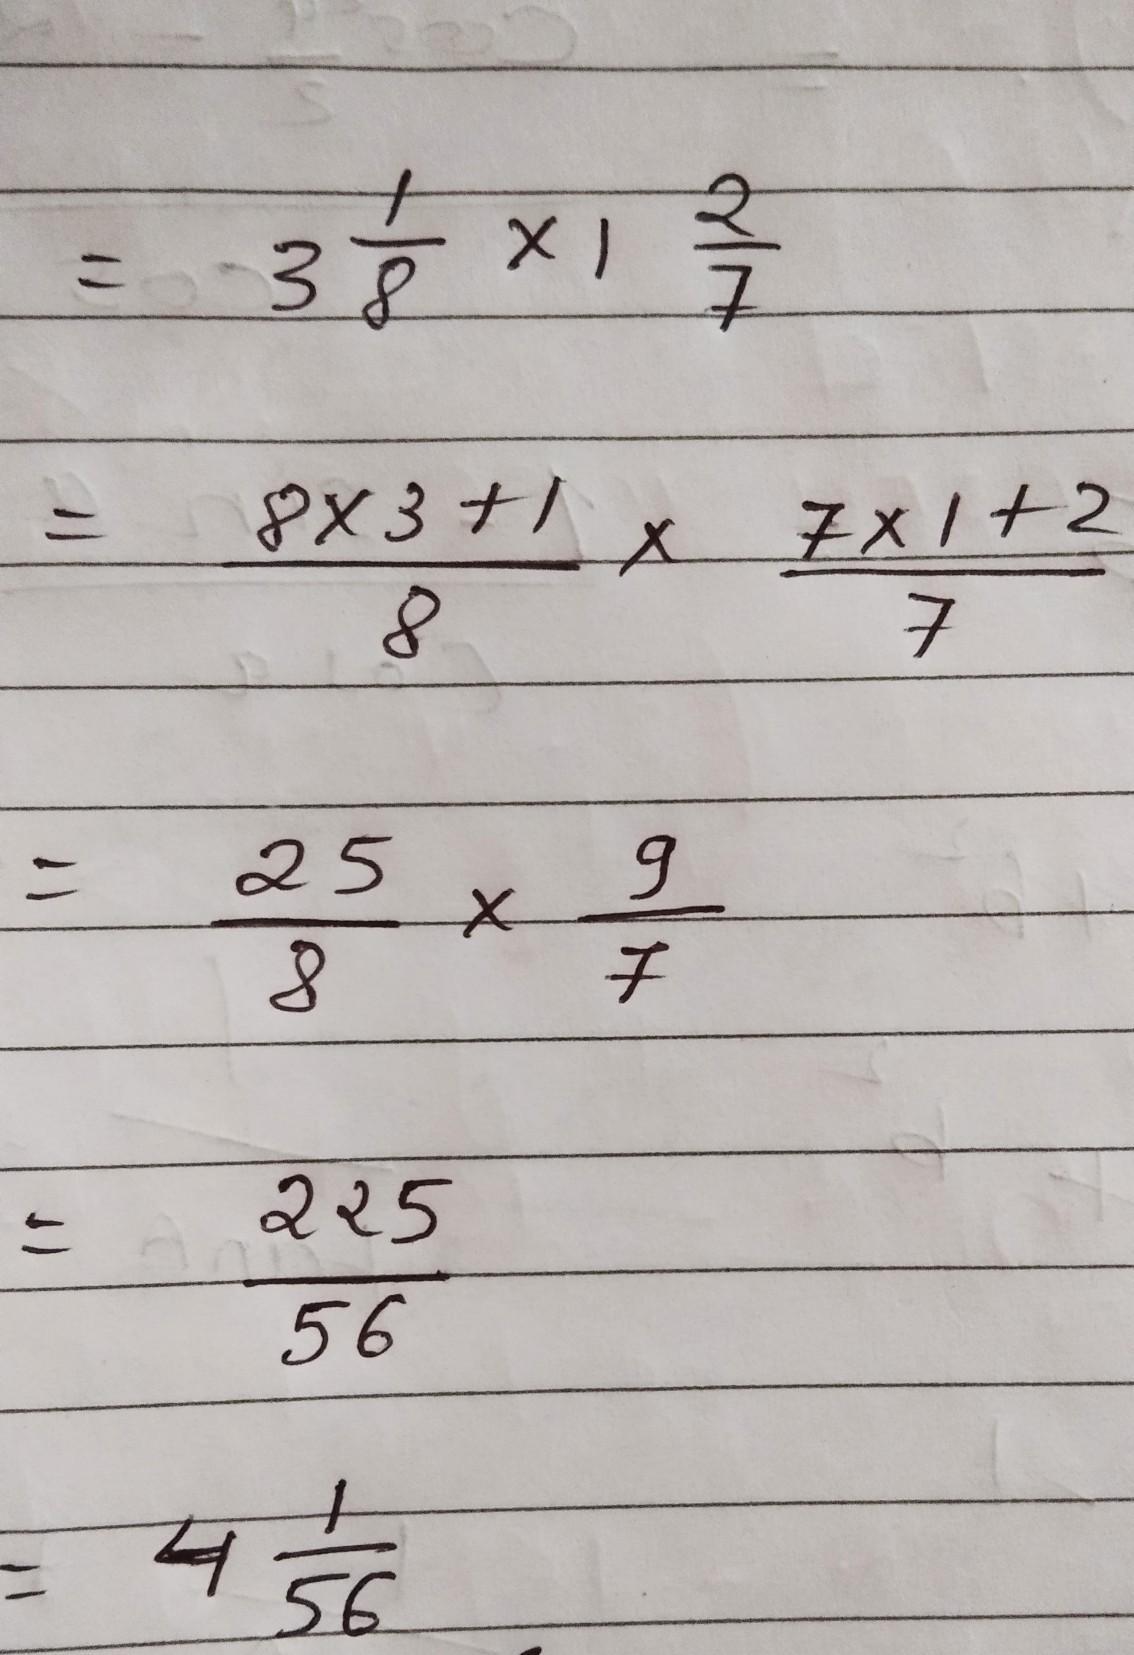 = 3 1/8 × 1 2/7
= (8×3+1)/8 × (7×1+2)/7
= 25/8 × 9/7
= 225/56
= 4 1/56